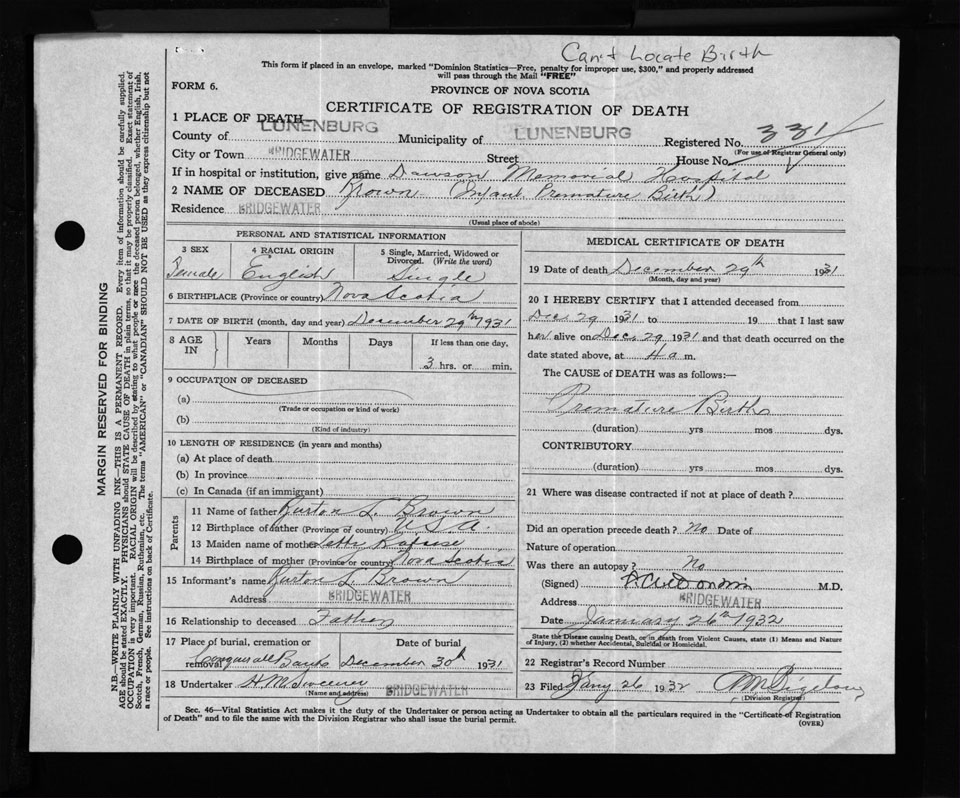 Can't Locate Birth
This form if placed in an envelope, marked "Dominion Statistics—Free, penalty for improper use, $300," and properly addressed
will pass through the Mail "FREE"
FORM 6.
PROVINCE OF NOVA SCOTIA
CERTIFICATE OF REGISTRATION OF DEATH
1 PLACE OF DEATH—
County of LUNENBURG Municipality of LUNENBURG Registered No. 331
(For use of Registrar General only)
City or Town BRIDGEWATER Street House No.
If in hospital or institution, give name Dawson Memorial Hospital
2 NAME OF DECEASED Brown (Infant Premature Birth)
Residence BRIDGEWATER
(Usual place of abode)
PERSONAL AND STATISTICAL INFORMATION
3 SEX 4 RACIAL ORIGIN 5 Single, Married, Widowed or
Divorced. (Write the word)
Female English Single
6 BIRTHPLACE (Province or country) Nova Scotia
7 DATE OF BIRTH (month, day and year) December 29th 1931
8 AGE IN Years Months Days If less than one day,
3 hrs. or min.
9 OCCUPATION OF DECEASED
(a)
(Trade or occupation or kind of work)
(b)
(Kind of industry)
10 LENGTH OF RESIDENCE (in years and months)
(a) At place of death
(b) In province
(c) In Canada (if an immigrant)
Parents
11 Name of father Burton L. Brown
12 Birthplace of father (Province or country) U.S.A.
13 Maiden name of mother Letty
14 Birthplace of mother (Province or country) Nova Scotia
15 Informant's name Burton L. Brown
Address BRIDGEWATER
16 Relationship to deceased Father
17 Place of burial, cremation or removal Date of burial
Banks December 30th 1931
18 Undertaker H M Sweeney
(Name and address) BRIDGEWATER
MEDICAL CERTIFICATE OF DEATH
19 Date of death December 29th 1931
(Month, day and year)
20 I HEREBY CERTIFY that I attended deceased from
Dec 29 1931 to 19 that I last saw
her alive on Dec 29 1931 and that death occurred on the
date stated above, at 4 a m.
The CAUSE of DEATH was as follows:—
Premature Birth
(duration) yrs mos dys.
CONTRIBUTORY
(duration) yrs mos dys.
21 Where was disease contracted if not at place of death?
Did an operation precede death? No Date of
Nature of operation
Was there an autopsy? No
(Signed) M.D.
Address BRIDGEWATER
Date January 26th 1932
State the Disease causing Death, or in death from Violent Causes, state (1) Means and Nature
of Injury, (2) whether Accidental, Suicidal or Homicidal.
22 Registrar's Record Number
23 Filed Jany 26 1932
(Division Registrar)
Sec. 46—Vital Statistics Act makes it the duty of the Undertaker or person acting as Undertaker to obtain all the particulars required in the "Certificate of Registration
of Death" and to file the same with the Division Registrar who shall issue the burial permit.
(OVER)
MARGIN RESERVED FOR BINDING
N.B.—WRITE PLAINLY WITH UNFADING INK—THIS IS A PERMANENT RECORD. Every item of information should be carefully supplied.
AGE should be stated EXACTLY. PHYSICIANS should STATE CAUSE OF DEATH in plain terms, so that it may be properly classified. Exact statement of
OCCUPATION is very important. RACIAL ORIGIN will be described by stating to what people or race the deceased person belonged, whether English, Irish,
Scotch, French, German, Russian, Ruthenian, etc. The terms "AMERICAN" or "CANADIAN" SHOULD NOT BE USED as they express citizenship but not
a race or people. See instructions on back of Certificate.